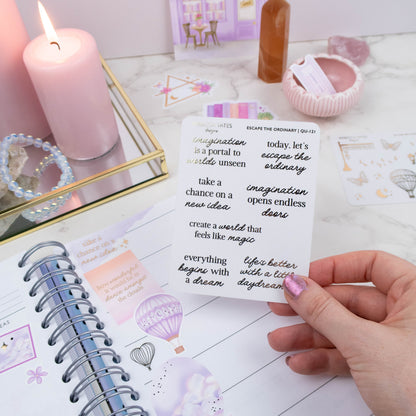 ESCAPE THE ORDINARY | QU-121
imagination
is a portal to
worlds unseen
today, let's
escape the
ordinary
take a
chance on a
new idea
imagination
opens endless
doors
create a world that
feels like magic
everything
begins with
a dream
life's better
with a little
daydream
take a
chance on a
new idea